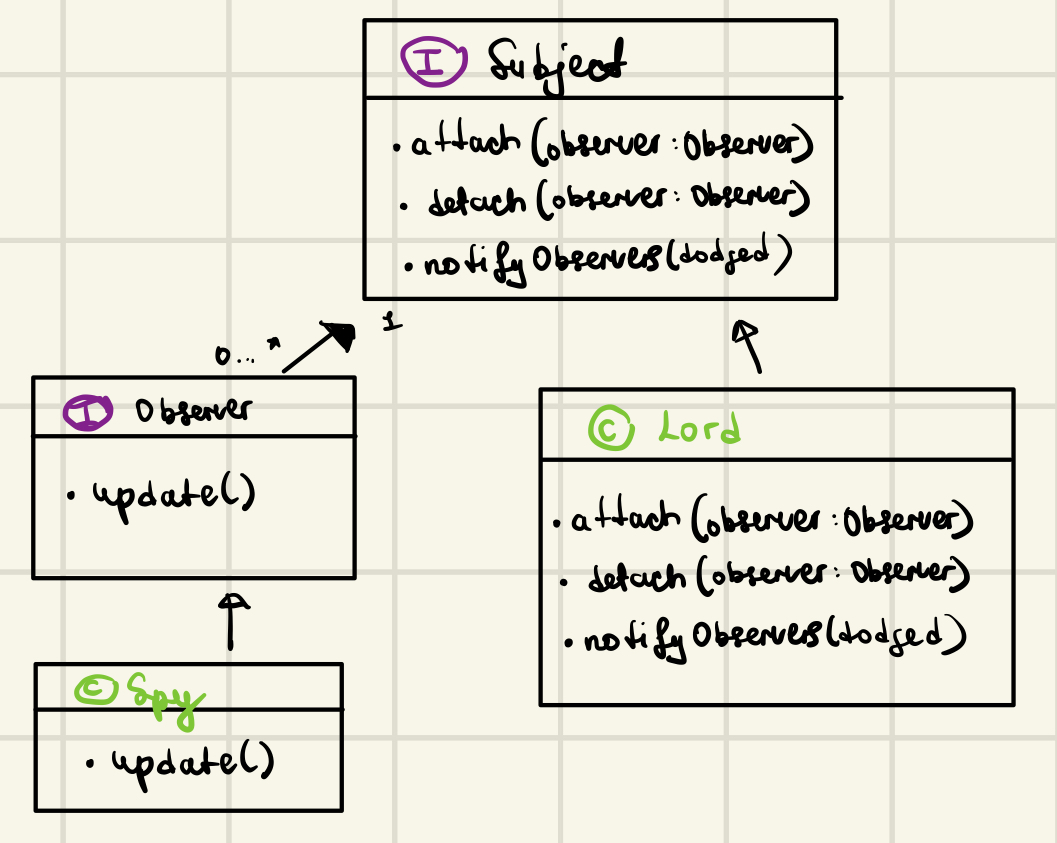 I Subject
• attach (observer : Observer)
• detach (observer : Observer)
• notifyObservers(dodged)
0...* 1
I Observer
• update()
C Lord
• attach (observer : Observer)
• detach (observer : Observer)
• notifyObservers(dodged)
C Spy
• update()